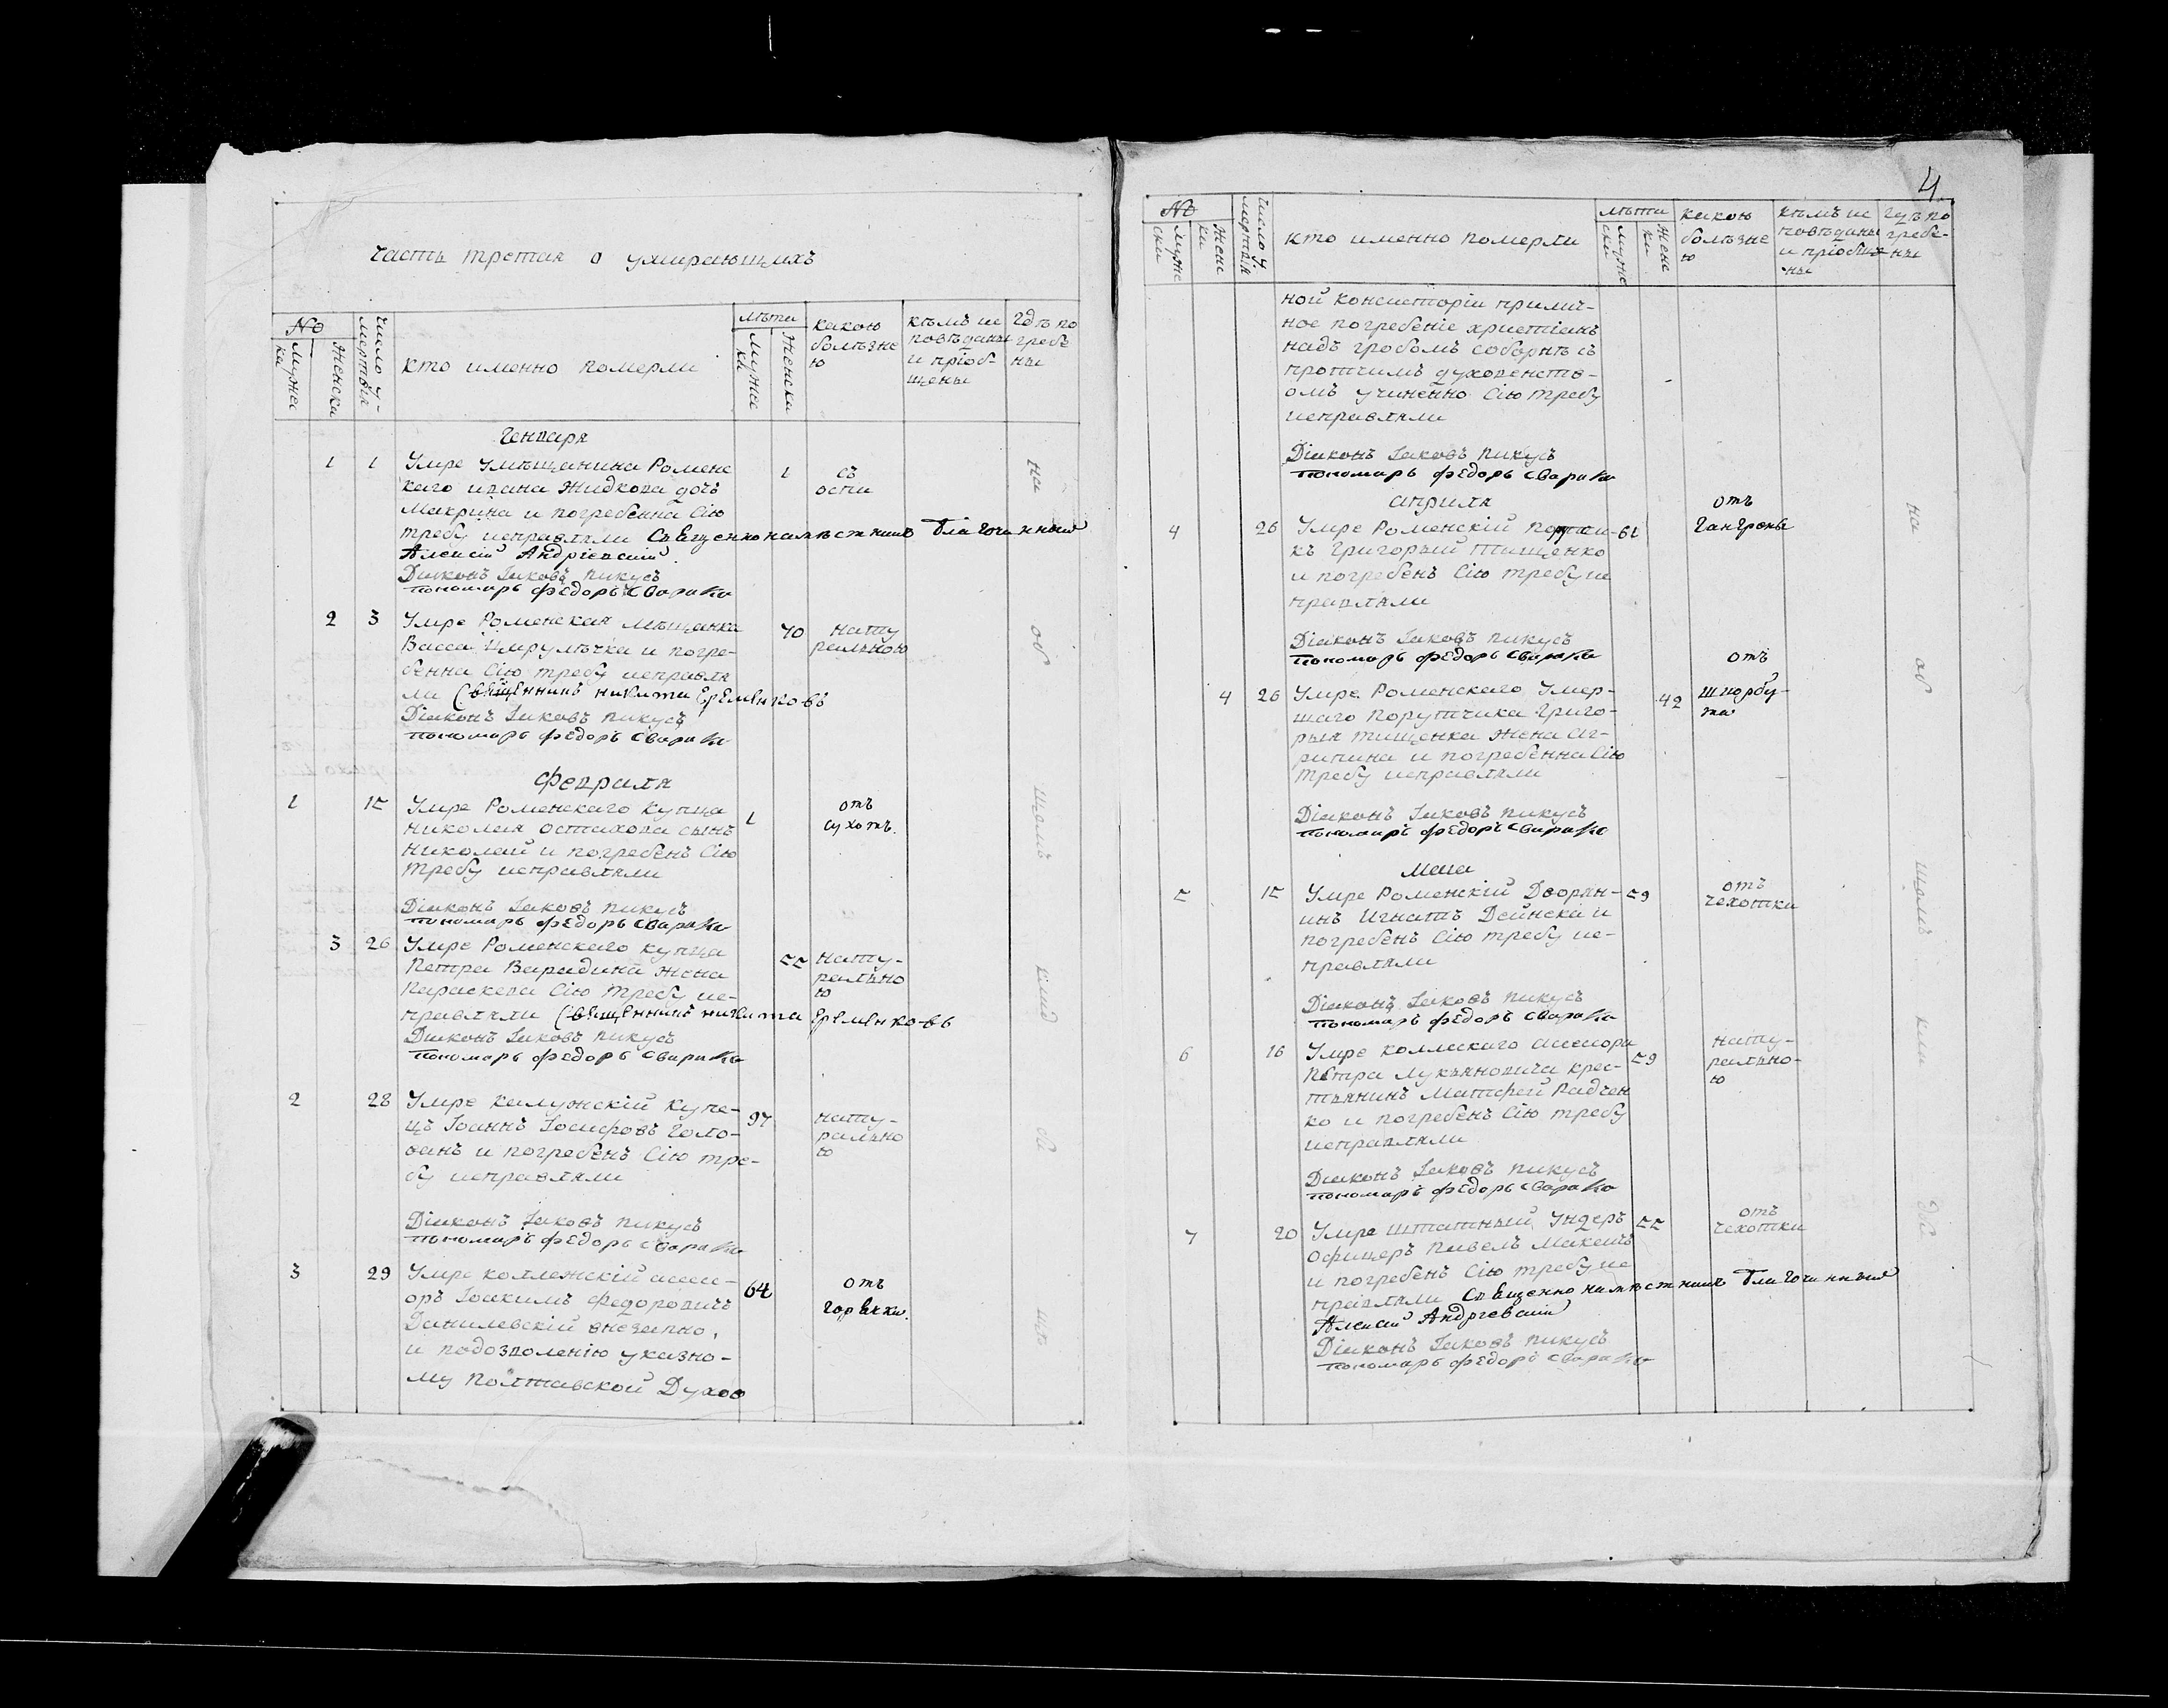 часть третая о умирающихъ
№
мужеска
женска
число умертвія
кто именно померли
лѣта
мужеска
женска
какою болѣзнею
кѣмъ исповѣданы и пріобщены
гдѣ погребены
Генваря
1 1 Умре умѣщанина Роменс 1 съ
каго ивана Жидкова дочь оспи
Макрина и погребенна Сію
требу исправляли Священнонамѣстникъ Благочинный
Алексій Андріевскій
Діаконъ Іаковъ пикусъ
пономарь федоръ Сварика
2 3 Умре Роменская мѣщанка 70 нату
Васса Цирулѣчка и погре- ральною
бенна Сію требу исправля
ли Священникъ никита Еременковъ
Діаконъ Іаковъ пикусъ
пономарь федоръ Сварика
Февраля
1 15 Умре Роменскаго Купца 1 отъ
николая остахова сынъ сухотъ.
николай и погребенъ Сію
требу исправляли
Діаконъ Іаковъ пикусъ
пономарь федоръ Сварика
3 26 Умре Роменскаго купца 55 нату-
Петра Варадина жена рально
Параскева Сію требу ис- ю
правляли Священникъ никита Еременковъ
Діаконъ Іаковъ пикусъ
пономарь федоръ Сварика
2 28 Умре калужскій купе- 97 нату-
цъ Іоаннъ Іосифовъ Голо- рально
ванъ и погребенъ Сію тре- ю
бу исправляли
Діаконъ Іаковъ пикусъ
пономарь федоръ Сварика
3 29 Умре коллежскій ассес- 64 отъ
оръ Іоакимъ Федоровичъ горячки.
Данилевскій внезапно,
и подозволенію указно-
му Полтавской Духов
на об щемъ клад би щѣ
4
№
мужески
женски
число умертвія
кто именно померли
лѣта
мужески
женски
какою болѣзнею
кѣмъ исповѣданы и пріобщены
гдѣ погребены
ной консисторіи прилич-
ное погребеніе христіанъ
надъ гробомъ соборнѣ съ
протчимъ духовенств-
омъ учиненно Сію требу
исправляли
Діаконъ Іаковъ пикусъ
пономарь федоръ Сварика
априля отъ
4 26 Умре Роменскій 61 Гангрены
къ григорый тищенко
и погребенъ Сію требу ис
правляли
Діаконъ Іаковъ пикусъ
пономарь федоръ Сварика отъ
4 26 Умре Роменскаго умер- 42 шкорбу-
шаго порутчика григо- та
рыя тищенка жена аг-
рипина и погребенна Сію
требу исправляли
Діаконъ Іаковъ пикусъ
пономарь федоръ Сварика
Маиа
5 15 Умре Роменскій Дворян- 59 отъ
инъ Игнатъ Дейнека и чехотки
погребенъ Сію требу ис-
правляли
Діаконъ Іаковъ пикусъ
пономарь федоръ Сварика
6 16 Умре коллескаго асессора 59 нату-
Петра лукьяновича крес- рально-
тьянинъ Матфей Радчен ю
ко и погребенъ Сію требу
исправляли
Діаконъ Іаковъ пикусъ
пономарь федоръ Сварика
7 20 Умре штатный Ундеръ 55 отъ
офицеръ павелъ Макешъ чехотки
и погребенъ Сію требу ис
правляли Священнонамѣстникъ Благочинный
Алексій Андріевскій
Діаконъ Іаковъ пикусъ
пономарь федоръ Сварика
на об щомъ кла